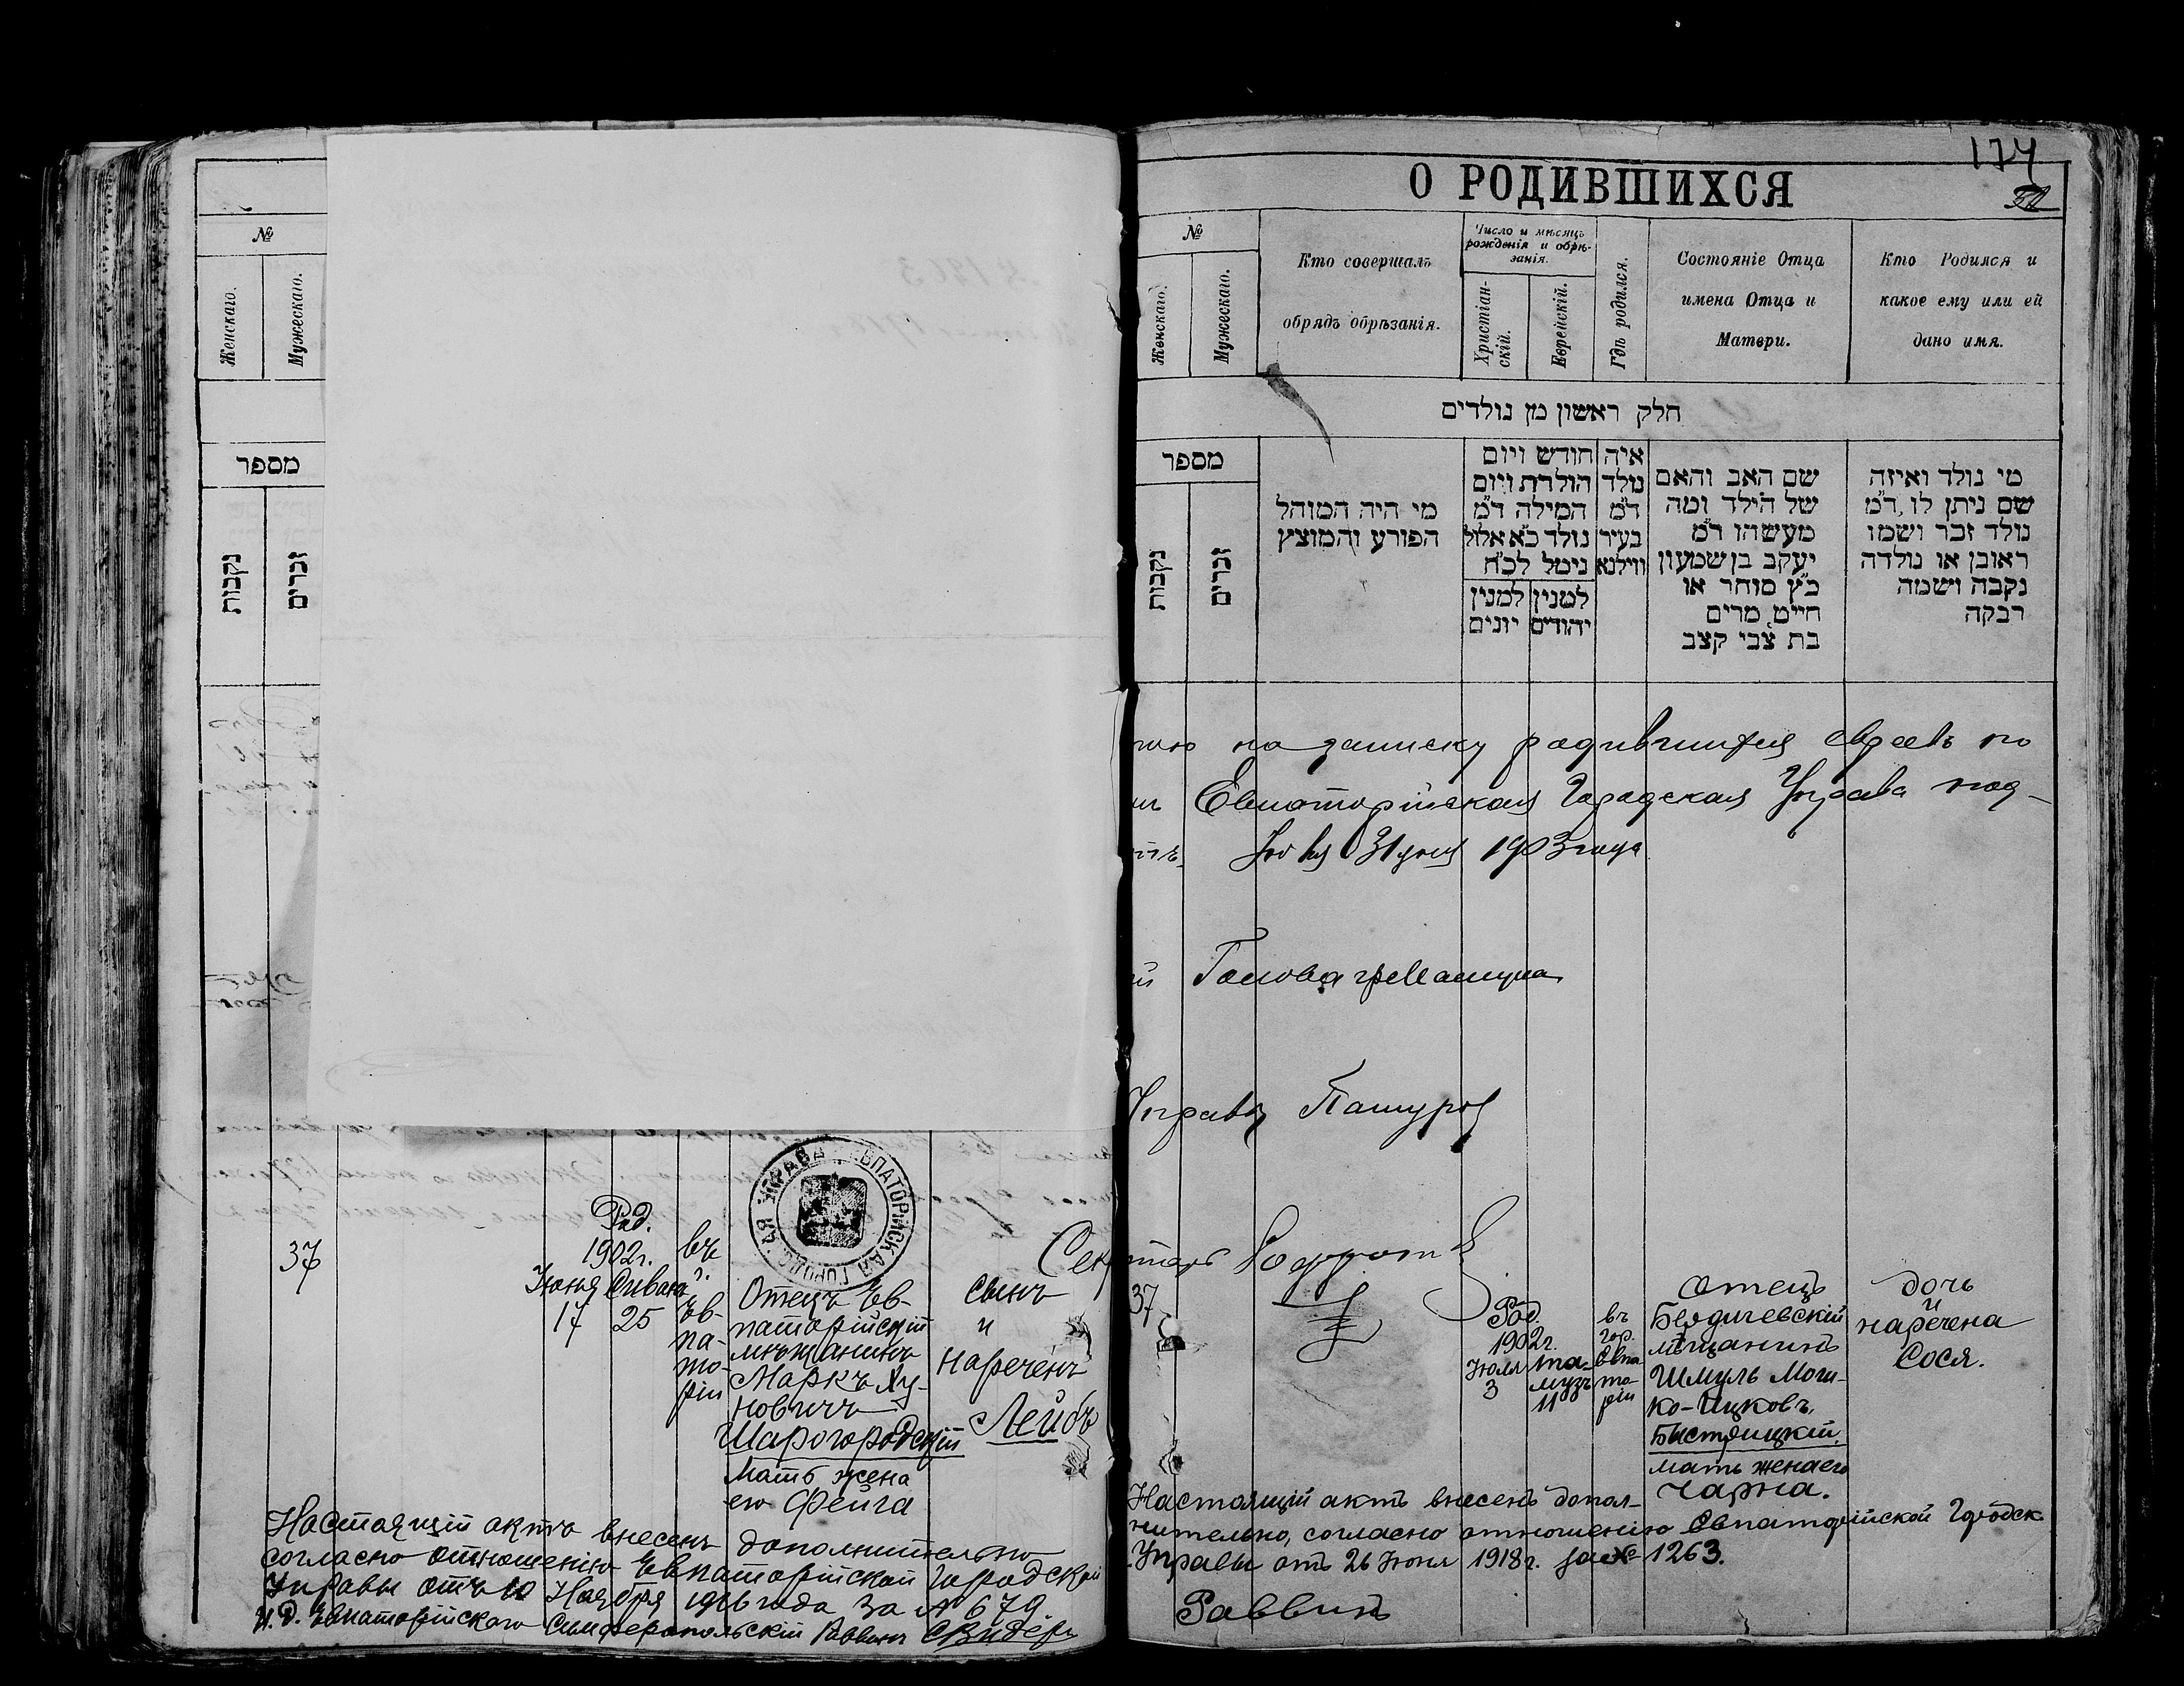 №
Женскаго.
Мужескаго.
מספר
נקבות
זכרים
УПРАВА ЕВПАТОРІЙСКАЯ ГОРОДСКАЯ
37
Род.
1902 г.
Іюня Сивана
17 25
въ
г.
Ев-
па-
то-
ріи
Отецъ Ев-
паторійскій
мѣщанинъ
Маркъ Ху-
новичъ
Шарогородскій
Мать жена
его Фейга
сынъ
и
нареченъ
Лейбъ
Настоящій актъ внесенъ дополнительно
согласно отношенію Евпаторійской Городской
Управы отъ 10 Ноября 1916 года за № 679.
И.Д. Евпаторійскаго Симферопольскій Раввинъ
174
О РОДИВШИХСЯ
№
Женскаго.
Мужескаго.
Кто совершалъ
обрядъ обрѣзанія.
Число и мѣсяцъ
рожденія и обрѣ-
занія.
Христіан-
скій.
Еврейскій.
Гдѣ родился.
Состояніе Отца
имена Отца и
Матери.
Кто Родился и
какое ему или ей
дано имя.
חלק ראשון מן נולדים
מספר
נקבות
זכרים
מי היה המוהל
הפורע והמוצץ
חודש ויום
הולדת ויום
המילה ד״מ
נולד כ״א אלול
נימל לכ״ח
למנין למנין
יהודים יונים
איה
נולד
ד״מ
בעיר
ווילנא
שם האב והאם
של הילד ומה
מעשהו ד״מ
יעקב בן שמעון
כ״ץ סוחר או
חייט מרים
בת צבי קצב
מי נולד ואיזה
שם ניתן לו ד״מ
נולד זכר ושמו
ראובן או נולדה
נקבה ושמה
רבקה
на записку родившихся евреевъ по
Евпаторійская Городская Управа под-
31 дня 1903 года
Голова
Управы
Секретарь
37
Род.
1902 г.
Іюля та-
3 музъ
11
въ
гор.
Евпа
то-
ріи
Отецъ
Бердичевскій
мѣщанинъ
Шмуль Мош-
ко-Ицковъ
Быстрицкій.
мать жена его
Чарна.
дочь
и
наречена
Сося.
Настоящій актъ внесенъ допол-
нительно, согласно отношенію Евпаторійской Городск.
Управы отъ 26 Іюня 1918 г. за № 1263.
Раввинъ